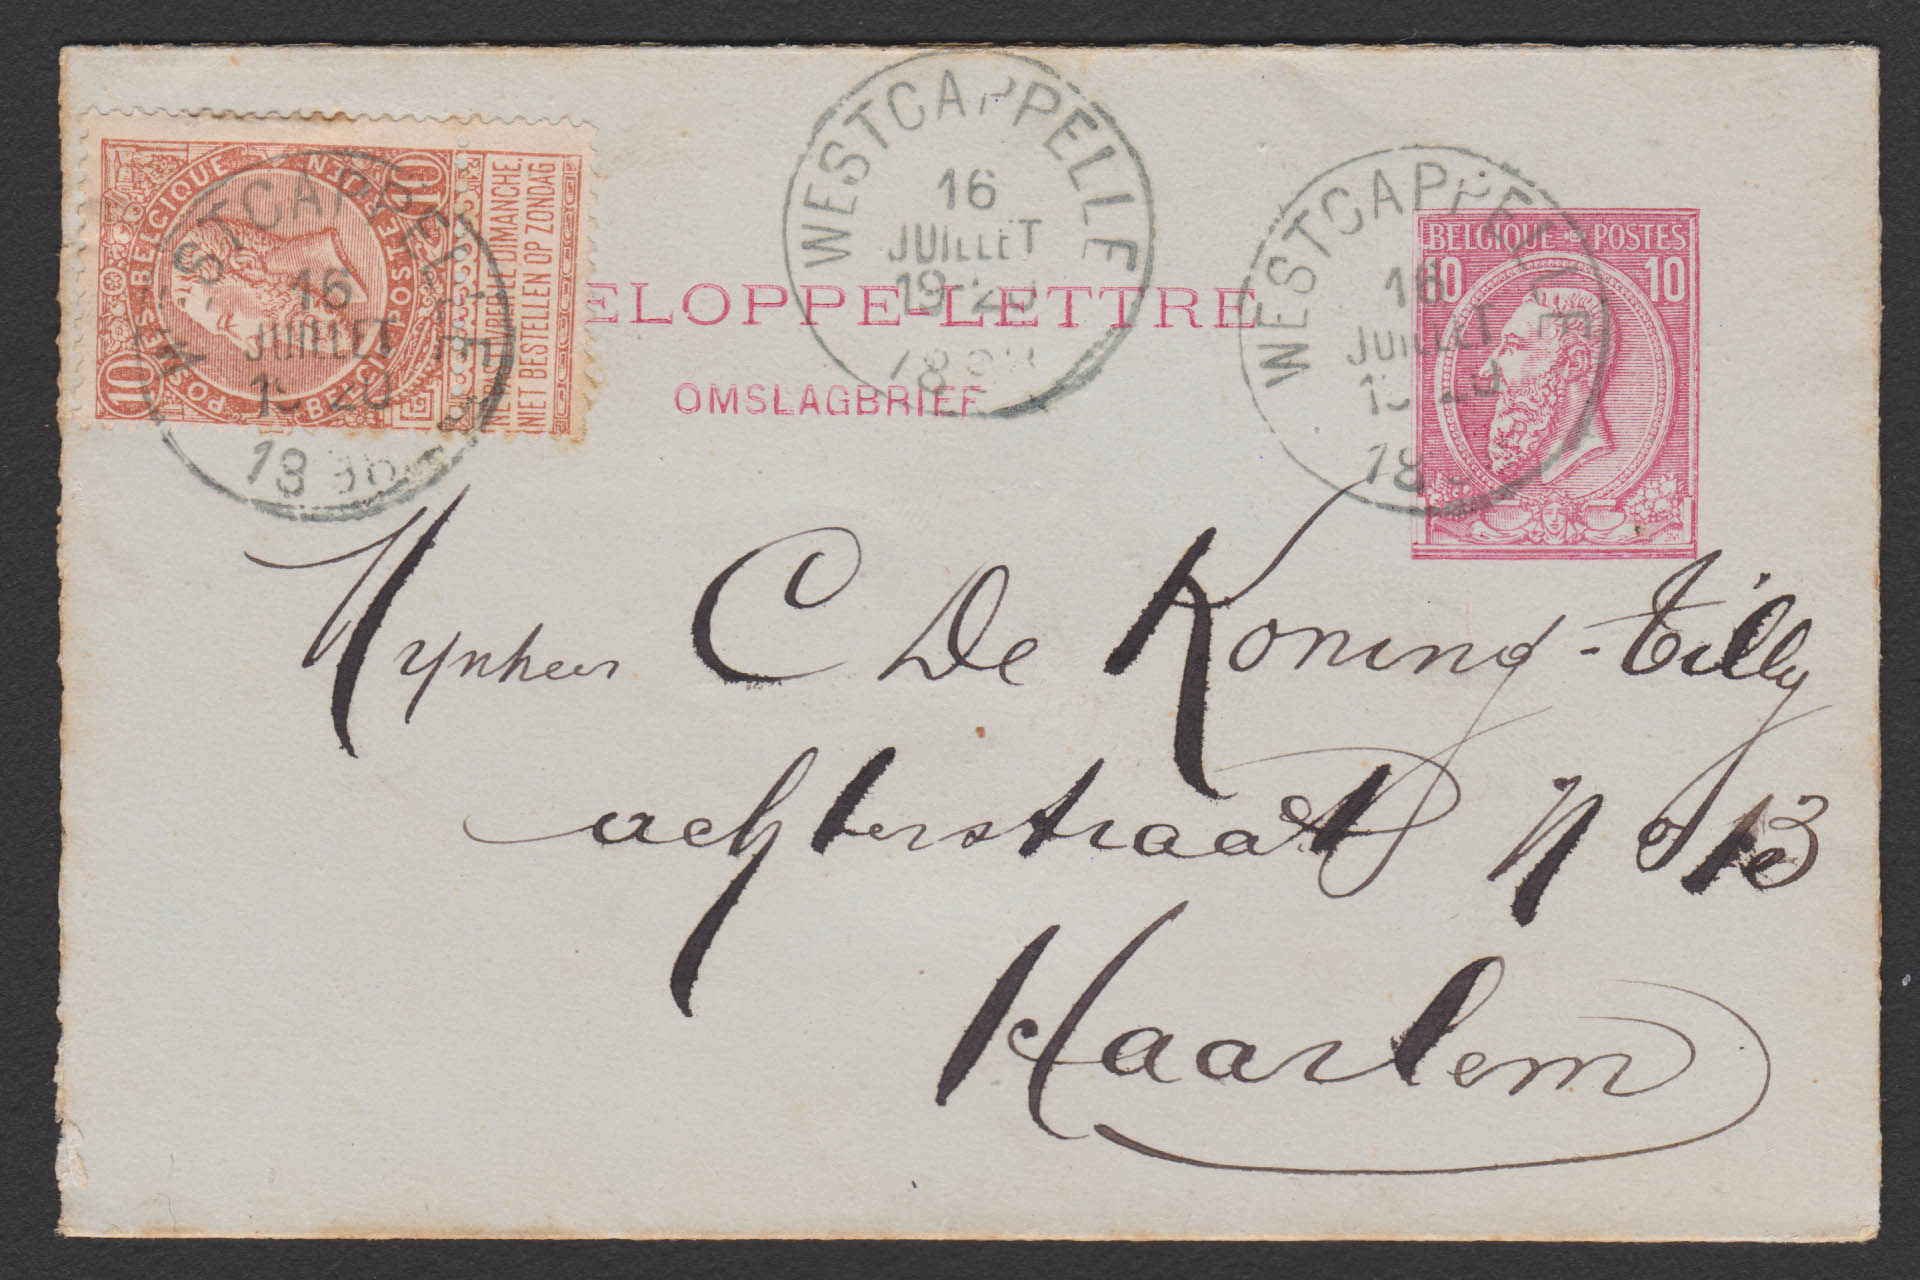 10 10
BELGIQUE
POSTES BELGIË POSTERIJEN
NE PAS LIVRER LE DIMANCHE.
NIET BESTELLEN OP ZONDAG
WESTCAPPELLE
16
JUILLET
19-20
1898
WESTCAPPELLE
16
JUILLET
19-20
WESTCAPPELLE
16
JUILLET
BELGIQUE POSTES
10 10
ELOPPE-LETTRE
OMSLAGBRIEF
Mynheer C De Koning-Tilly
achterstraat No 13
Haarlem